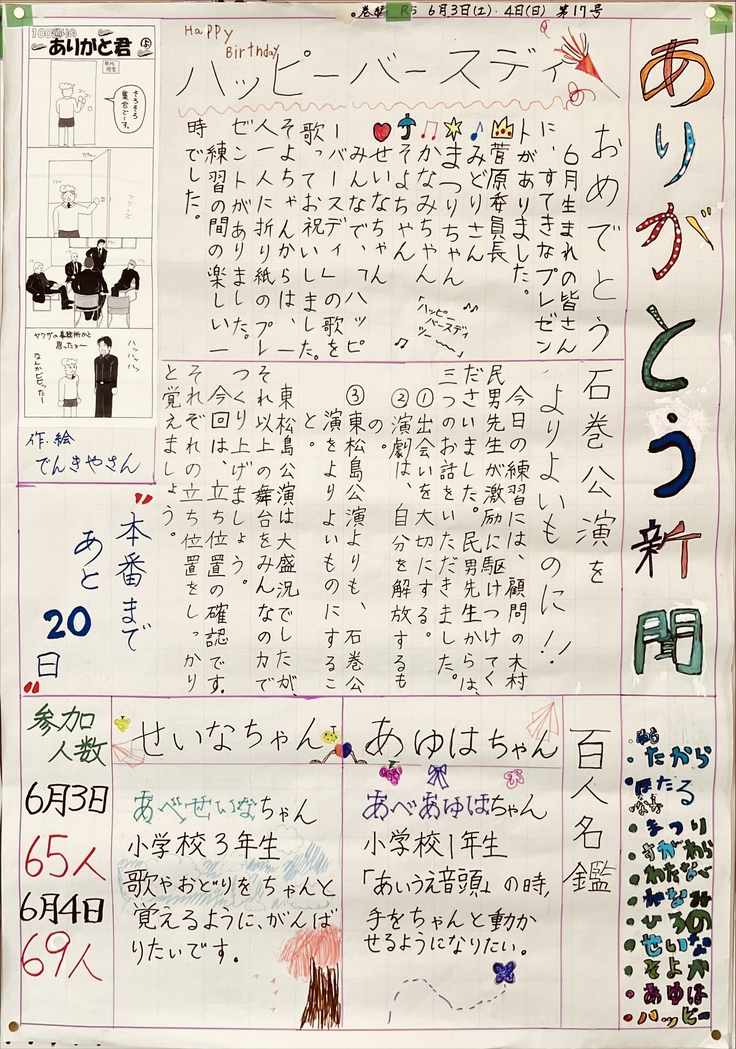 R5 6月3日(土)・4日(日) 第17号
ありがとう新聞
Happy
Birthday
ハッピーバースディ
おめでとう
6月生まれの皆さん
に、すてきなプレゼン
トがありました。
菅原委員長
みどりさん
まつりちゃん
かなみちゃん
そよちゃん
せいなちゃん
みんなで、「ハッピ
ーバースディ」の歌を
歌ってお祝いしました。
そよちゃんからは、一
人一人に折り紙のプレ
ゼントがありました。
練習の間の楽しい一
時でした。
ハッピー
バースディ
石巻公演を
よりよいものに!!
今日の練習には、顧問の木村
民男先生が激励に駆けつけてく
ださいました。民男先生からは、
三つのお話をいただきました。
①出会いを大切にする。
②演劇は、自分を解放するも
の。
③東松島公演よりも、石巻公
演をよりよいものにするこ
と。
東松島公演は大盛況でしたが、
それ以上の舞台をみんなの力で
つくり上げましょう。
今回は、立ち位置の確認です。
それぞれの立ち位置をしっかり
と覚えましょう。
ありがと君
そろそろ
集合でーす。
ヤクザの事務所かと
思ったョ〜
なんかビビッたー
ハッハッハッ
作・絵
でんきやさん
"本番まで
あと
20
日"
百人名鑑
あゆはちゃん
あべあゆはちゃん
小学校1年生
「あいうえ音頭」の時、
手をちゃんと動か
せるようになりたい。
せいなちゃん
あべせいなちゃん
小学校3年生
歌やおどりをちゃんと
覚えるように、がんば
りたいです。
参加
人数
6月3日
65人
6月4日
69人
・たから
・ほたる
・まつり
・すがわら
・わたなべ
・かなみ
・ひろの
・せいな
・そよか
・あゆは
・ハッピー